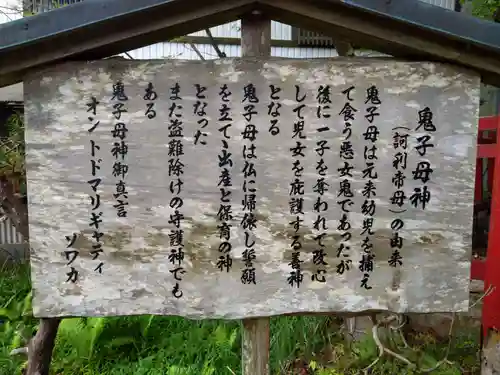 鬼子母神
（訶利帝母）の由来
鬼子母は元来幼児を捕え
て食う悪女鬼であったが
後に一子を奪われて改心
して児女を庇護する善神
となる
鬼子母は仏に帰依し誓願
を立てゝ出産と保育の神
となった
また盗難除けの守護神でも
ある
鬼子母神御真言
オントドマリギャディ
ソワカ